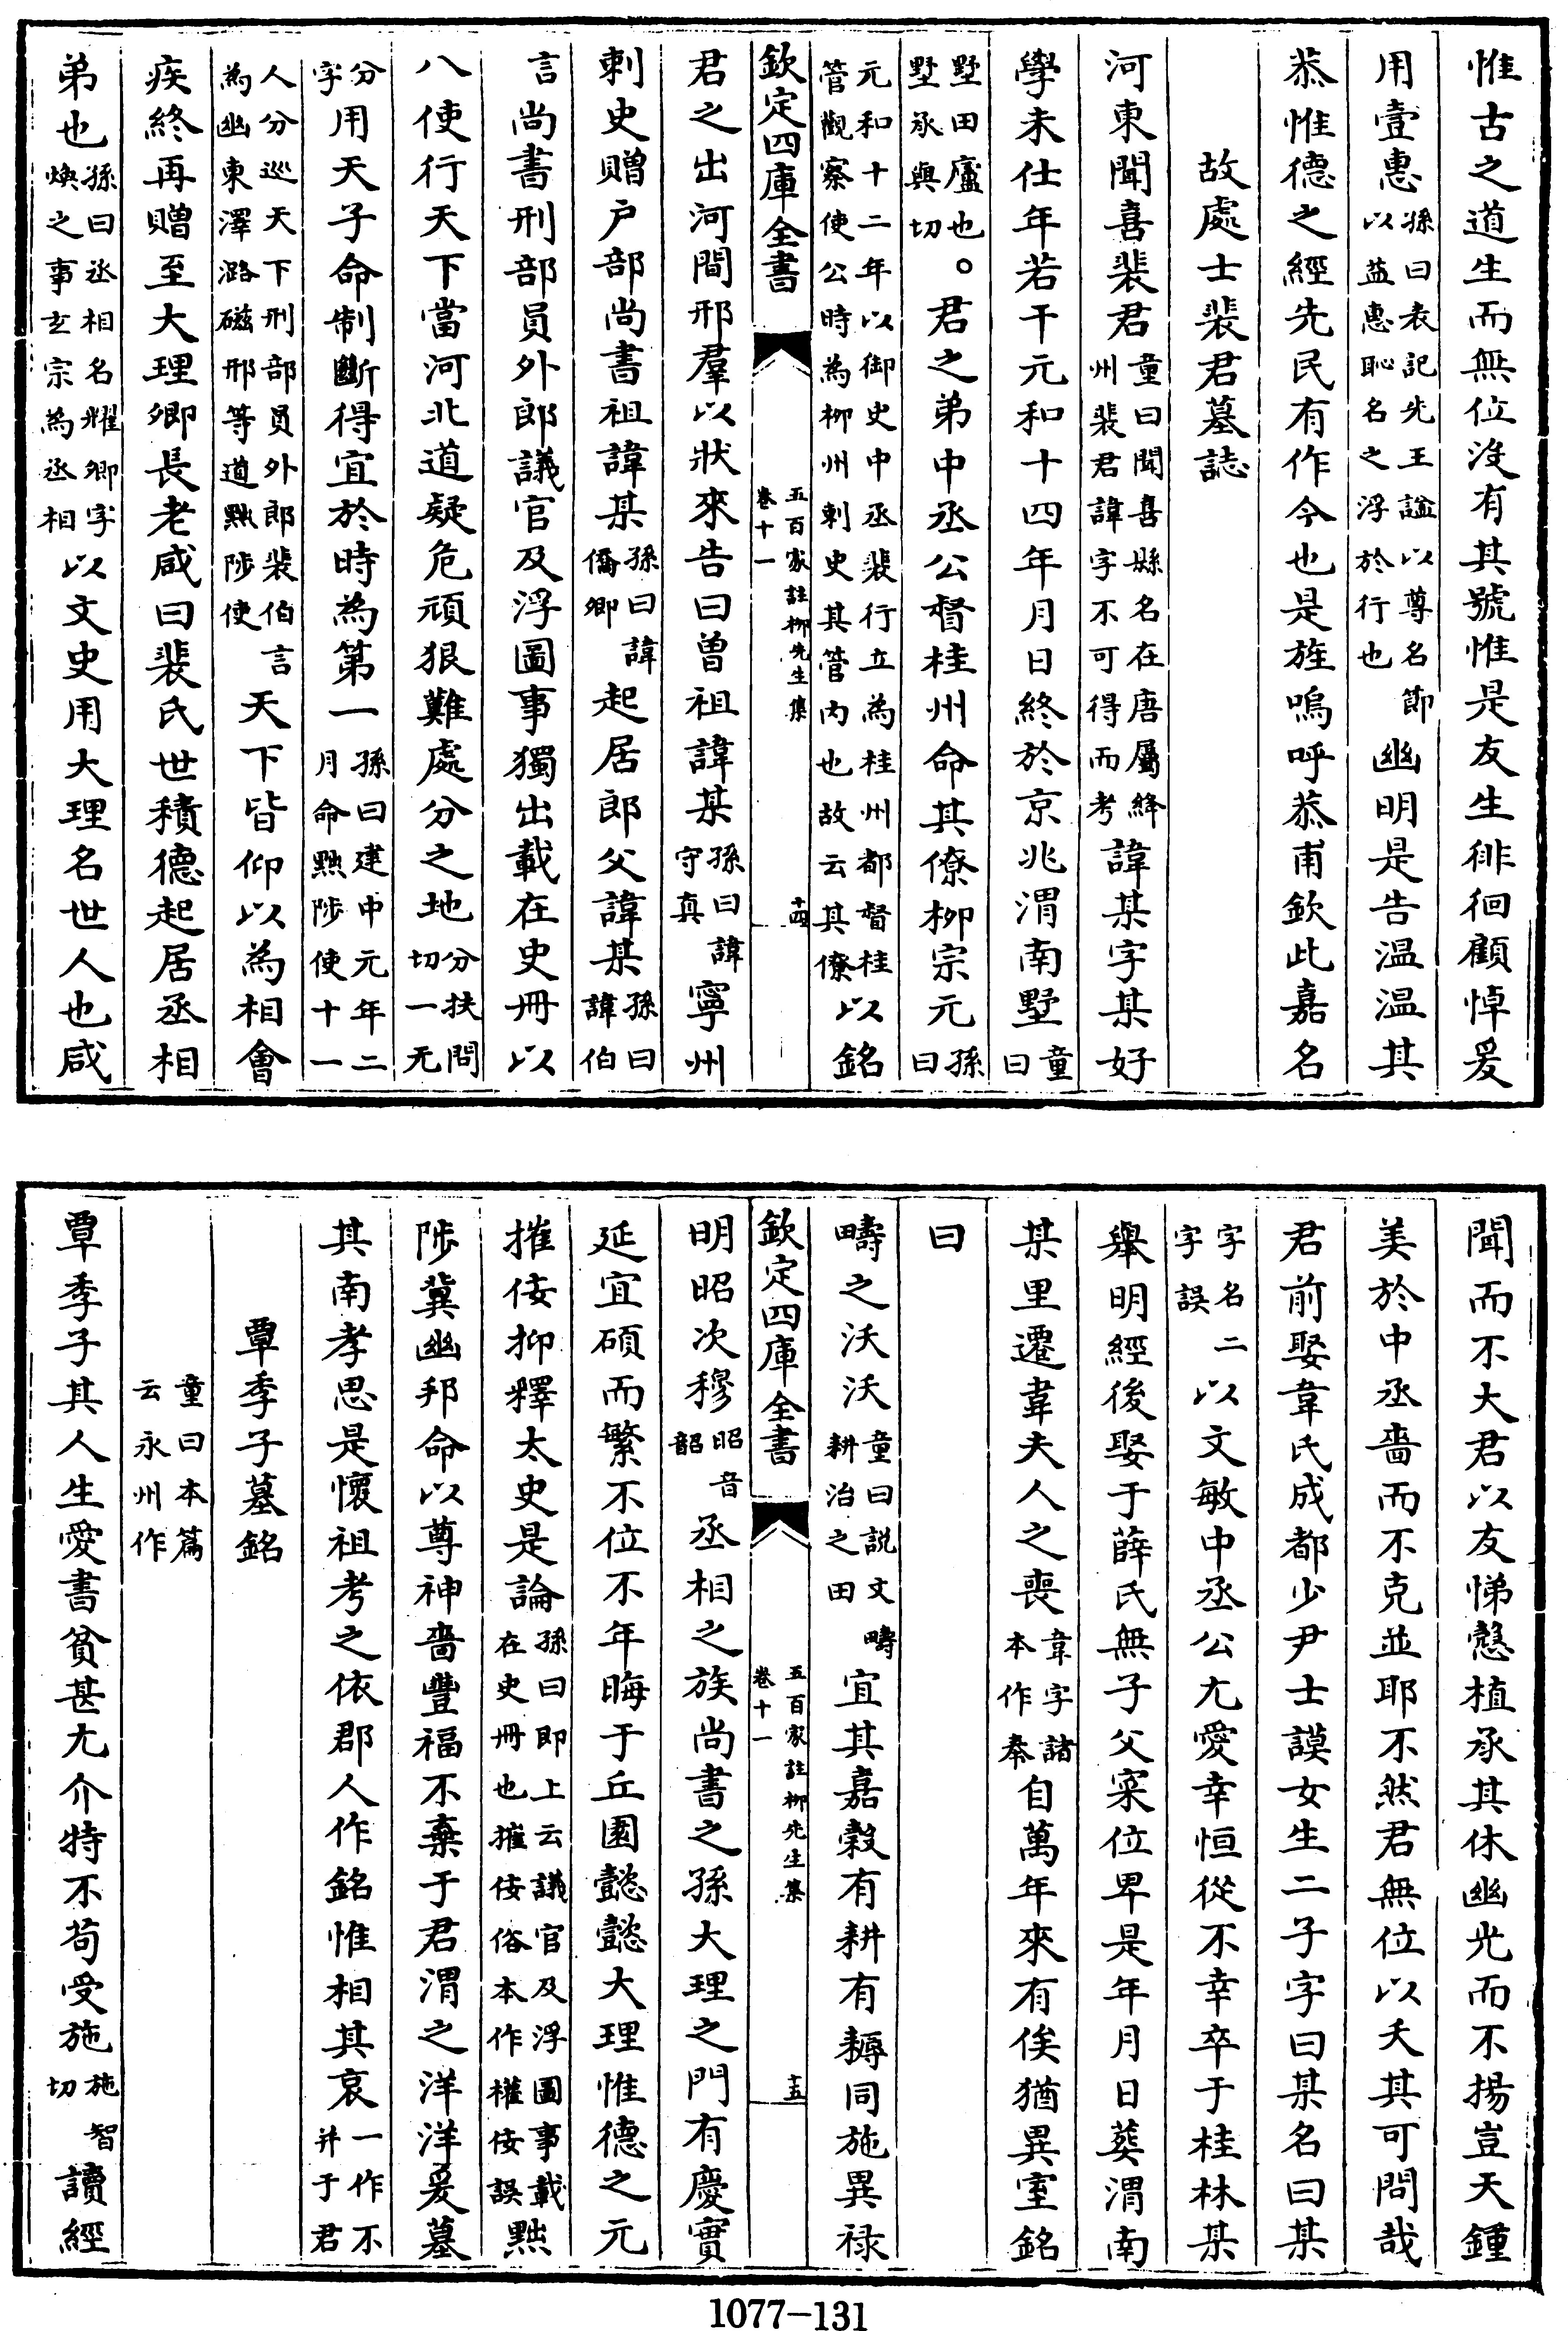 惟古之道生而無位沒有其號惟是友生徘徊顧悼爰
用壹惠孫曰表記先王諡以尊名節以益惠恥名之浮於行也幽明是告温温其
恭惟德之經先民有作今也是旌嗚呼恭甫欽此嘉名
故處士裴君墓誌
河東聞喜裴君童曰聞喜縣名在唐屬絳州裴君諱字不可得而考諱某字某好
學未仕年若干元和十四年月日終於京兆渭南墅童曰
墅田廬也墅承與切。君之弟中丞公督桂州命其僚柳宗元孫曰
元和十二年以御史中丞裴行立為桂州都督桂管觀察使公時為柳州刺史其管内也故云其僚以銘
欽定四庫全書
五百家註柳先生集
卷十一
十四
君之出河間邢羣以狀來告曰曾祖諱某孫曰諱守真寧州
刺史贈户部尚書祖諱某孫曰諱僑卿起居郎父諱某孫曰諱伯
言尚書刑部員外郎議官及浮圖事獨出載在史冊以
八使行天下當河北道疑危頑狠難處分之地分扶問切一无
分字用天子命制斷得宜於時為第一孫曰建中元年二月命黜陟使十一
人分巡天下刑部員外郎裴伯言為幽東澤潞磁邢等道黜陟使天下皆仰以為相會
疾終再贈至大理卿長老咸曰裴氏世積德起居丞相
弟也孫曰丞相名燿卿字煥之事玄宗為丞相以文史用大理名世人也咸
聞而不大君以友悌慤植承其休幽光而不揚豈天鍾
美於中丞嗇而不克並耶不然君無位以夭其可問哉
君前娶韋氏成都少尹士謨女生二子字曰某名曰某
字名二字誤以文敏中丞公尤愛幸恒從不幸卒于桂林某
舉明經後娶于薛氏無子父宷位卑是年月日葬渭南
某里遷韋夫人之喪韋字諸本作奉自萬年來有俟猶異室銘
曰
疇之沃沃童曰説文疇耕治之田宜其嘉穀有耕有耨同施異禄
欽定四庫全書
五百家註柳先生集
卷十一
十五
明昭次穆昭音韶丞相之族尚書之孫大理之門有慶實
延宜碩而繁不位不年晦于丘園懿懿大理惟德之元
摧佞抑釋太史是論孫曰即上云議官及浮圖事載在史冊也摧佞俗本作權佞誤黜
陟冀幽邦命以尊神嗇豐福不棄于君渭之洋洋爰墓
其南孝思是懷祖考之依郡人作銘惟相其哀一作不并于君
覃季子墓銘
童曰本篇云永州作
覃季子其人生愛書貧甚尤介特不苟受施施智切讀經
1077-131